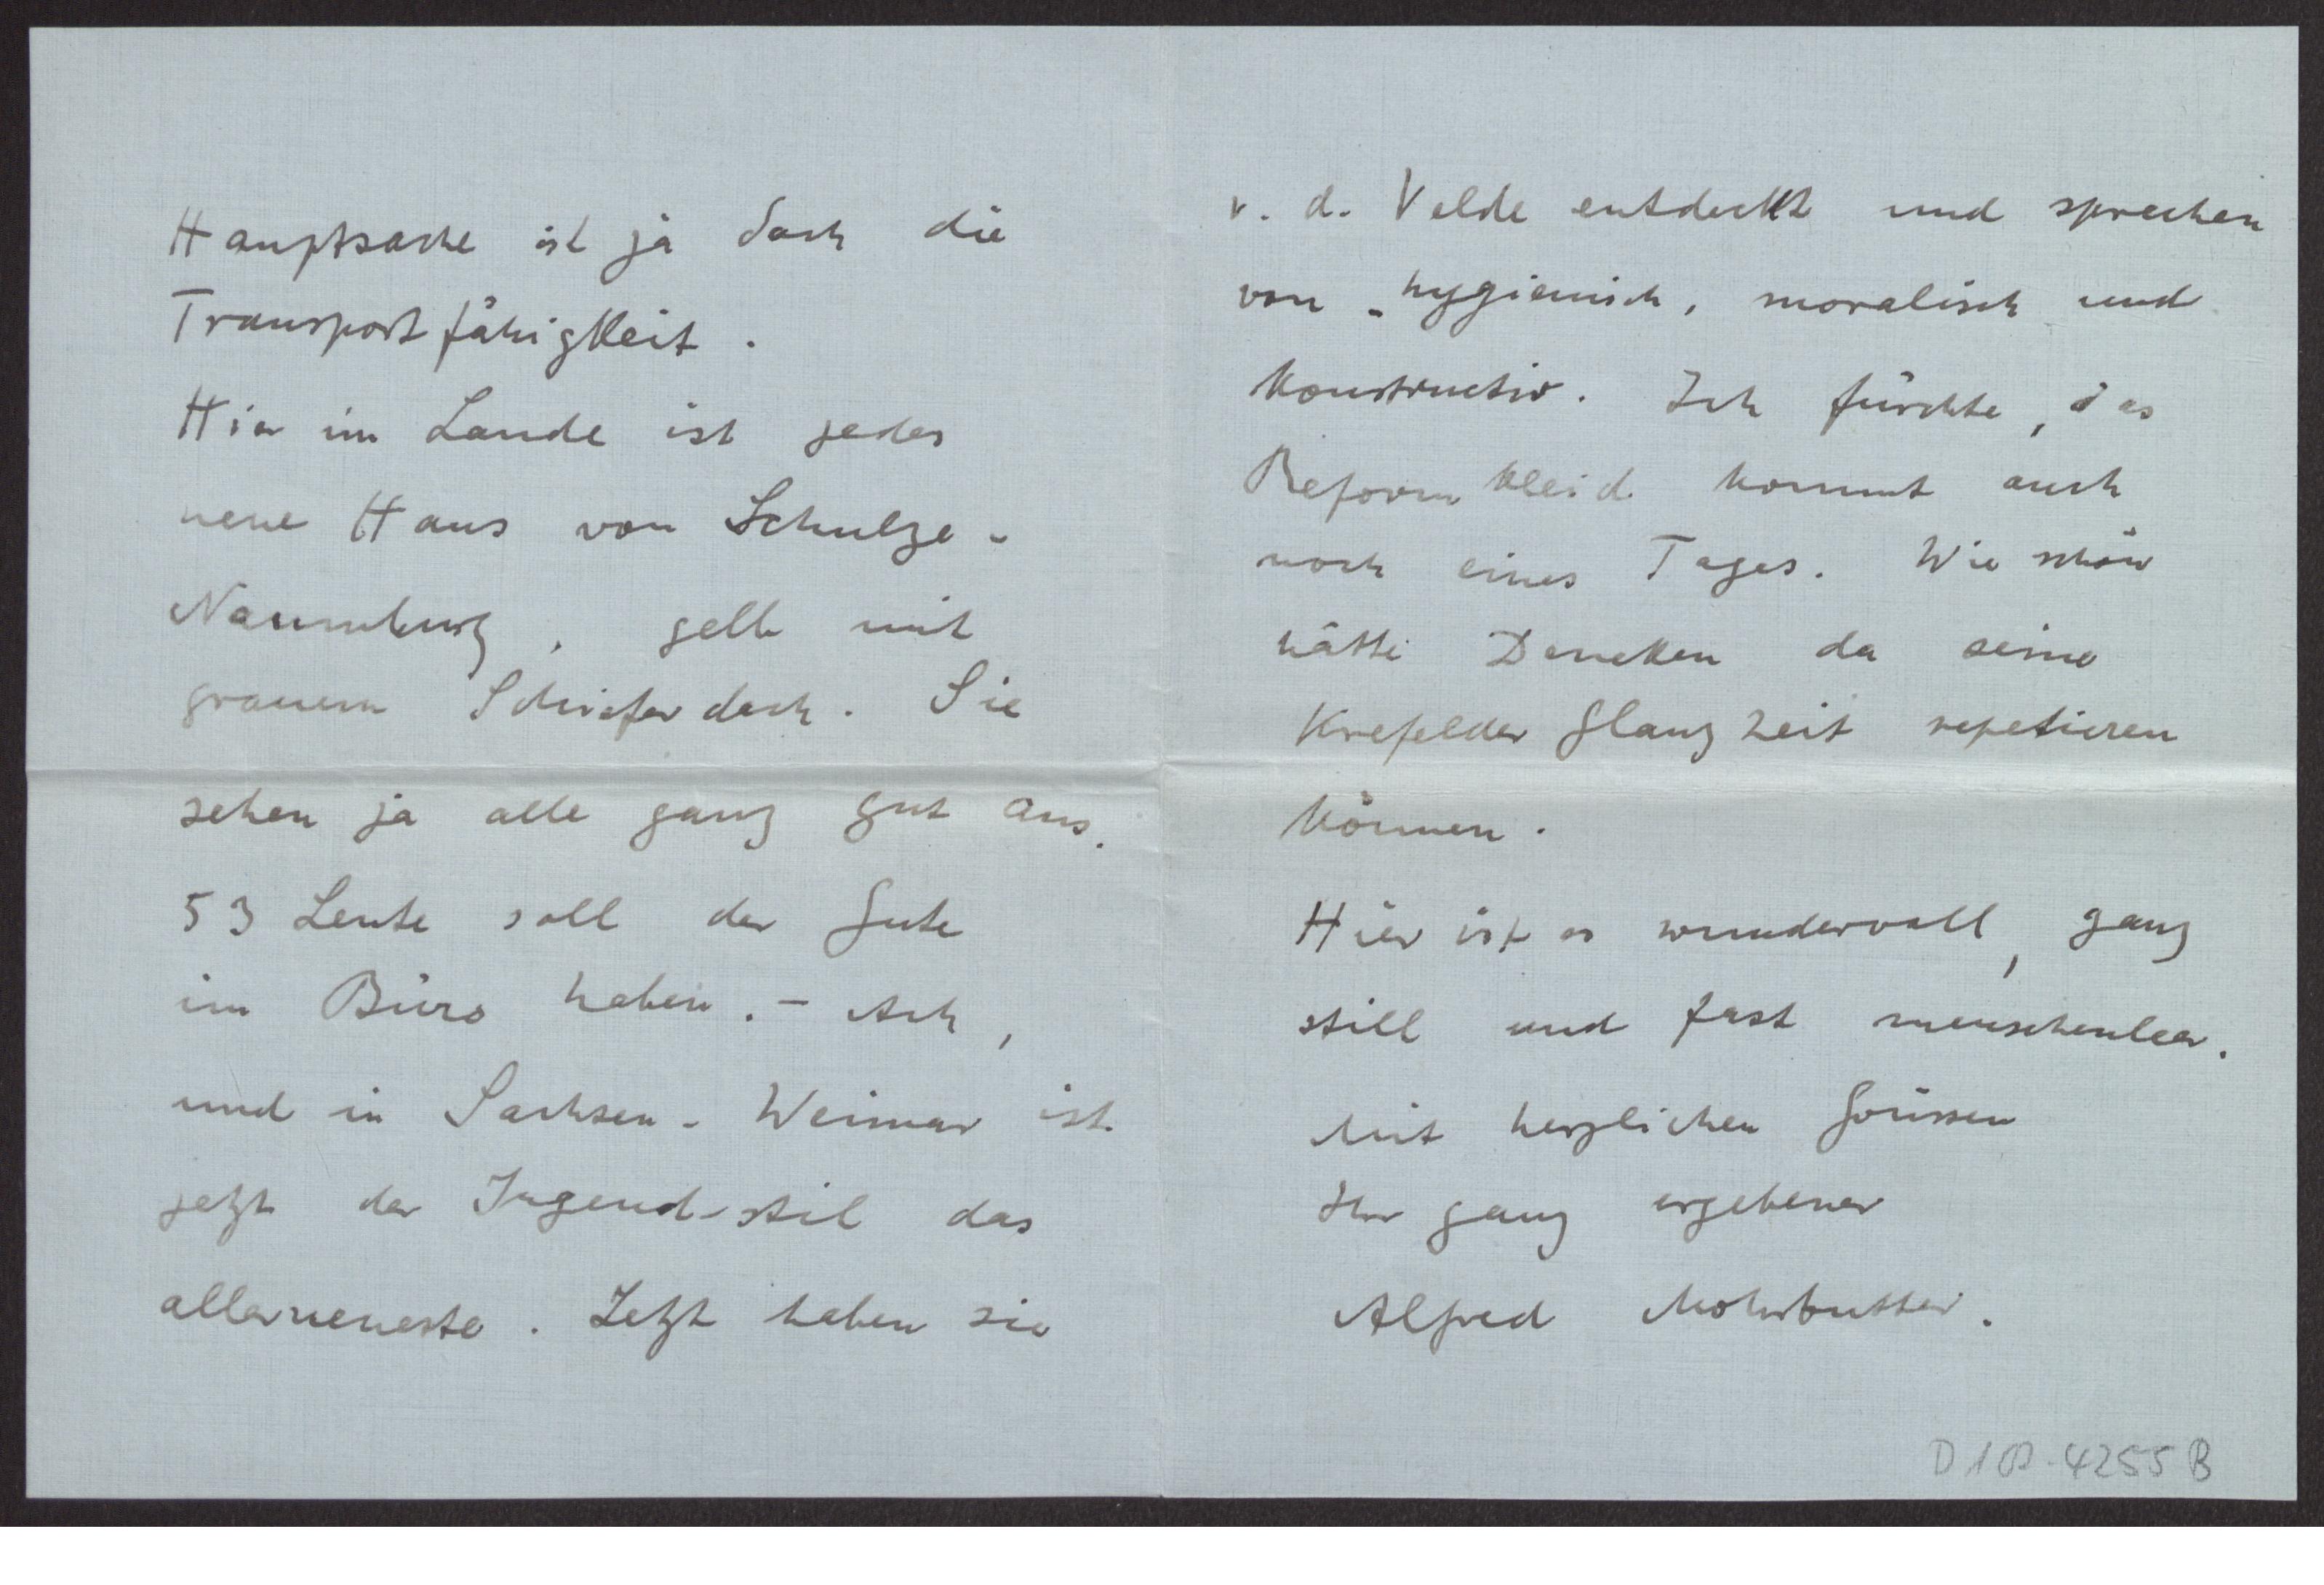 Hauptsache ist ja doch die
Transportfähigkeit.
Hier im Lande ist jedes
neue Haus von Schulze-
Naumburg, gelb mit
grauem Schieferdach. Sie
sehen ja alle ganz gut aus.
53 Leute soll der Gute
im Büro haben. - Ach,
und in Sachsen-Weimar ist
jetzt der Jugend-stil das
allerneueste. Jetzt haben sie
v. d. Velde entdeckt und sprechen
von „hygienisch, moralisch und
konstructiv. Ich fürchte, das
Reformkleid kommt auch
noch eines Tages. Wie schön
hätte Deneken da seine
Krefelder Glanzzeit repetieren
können.
Hier ist es wundervoll, ganz
still und fast menschenleer.
Mit herzlichen Grüssen
Ihr ganz ergebener
Alfred Mohrbutter.
4255 B